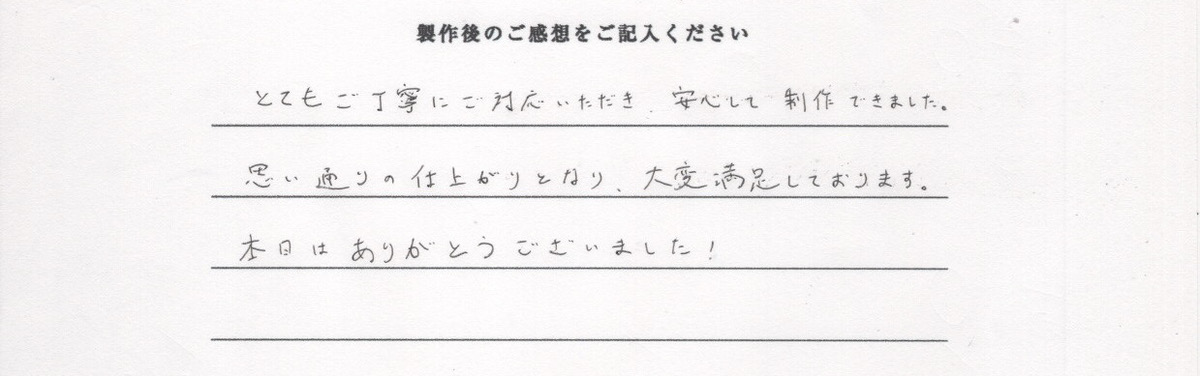 製作後のご感想をご記入ください
とてもご丁寧にご対応いただき、安心して制作できました。
思い通りの仕上がりとなり、大変満足しております。
本日はありがとうございました！